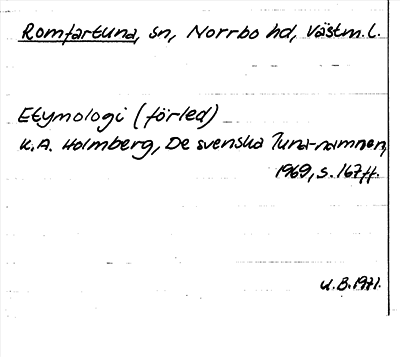 Romfartuna, sn, Norrbo hd, Västm. l.
Etymologi (förled)
K.A. Holmberg, De svenska Tuna-namnen,
1969, s. 167ff.
K.B. 1971.